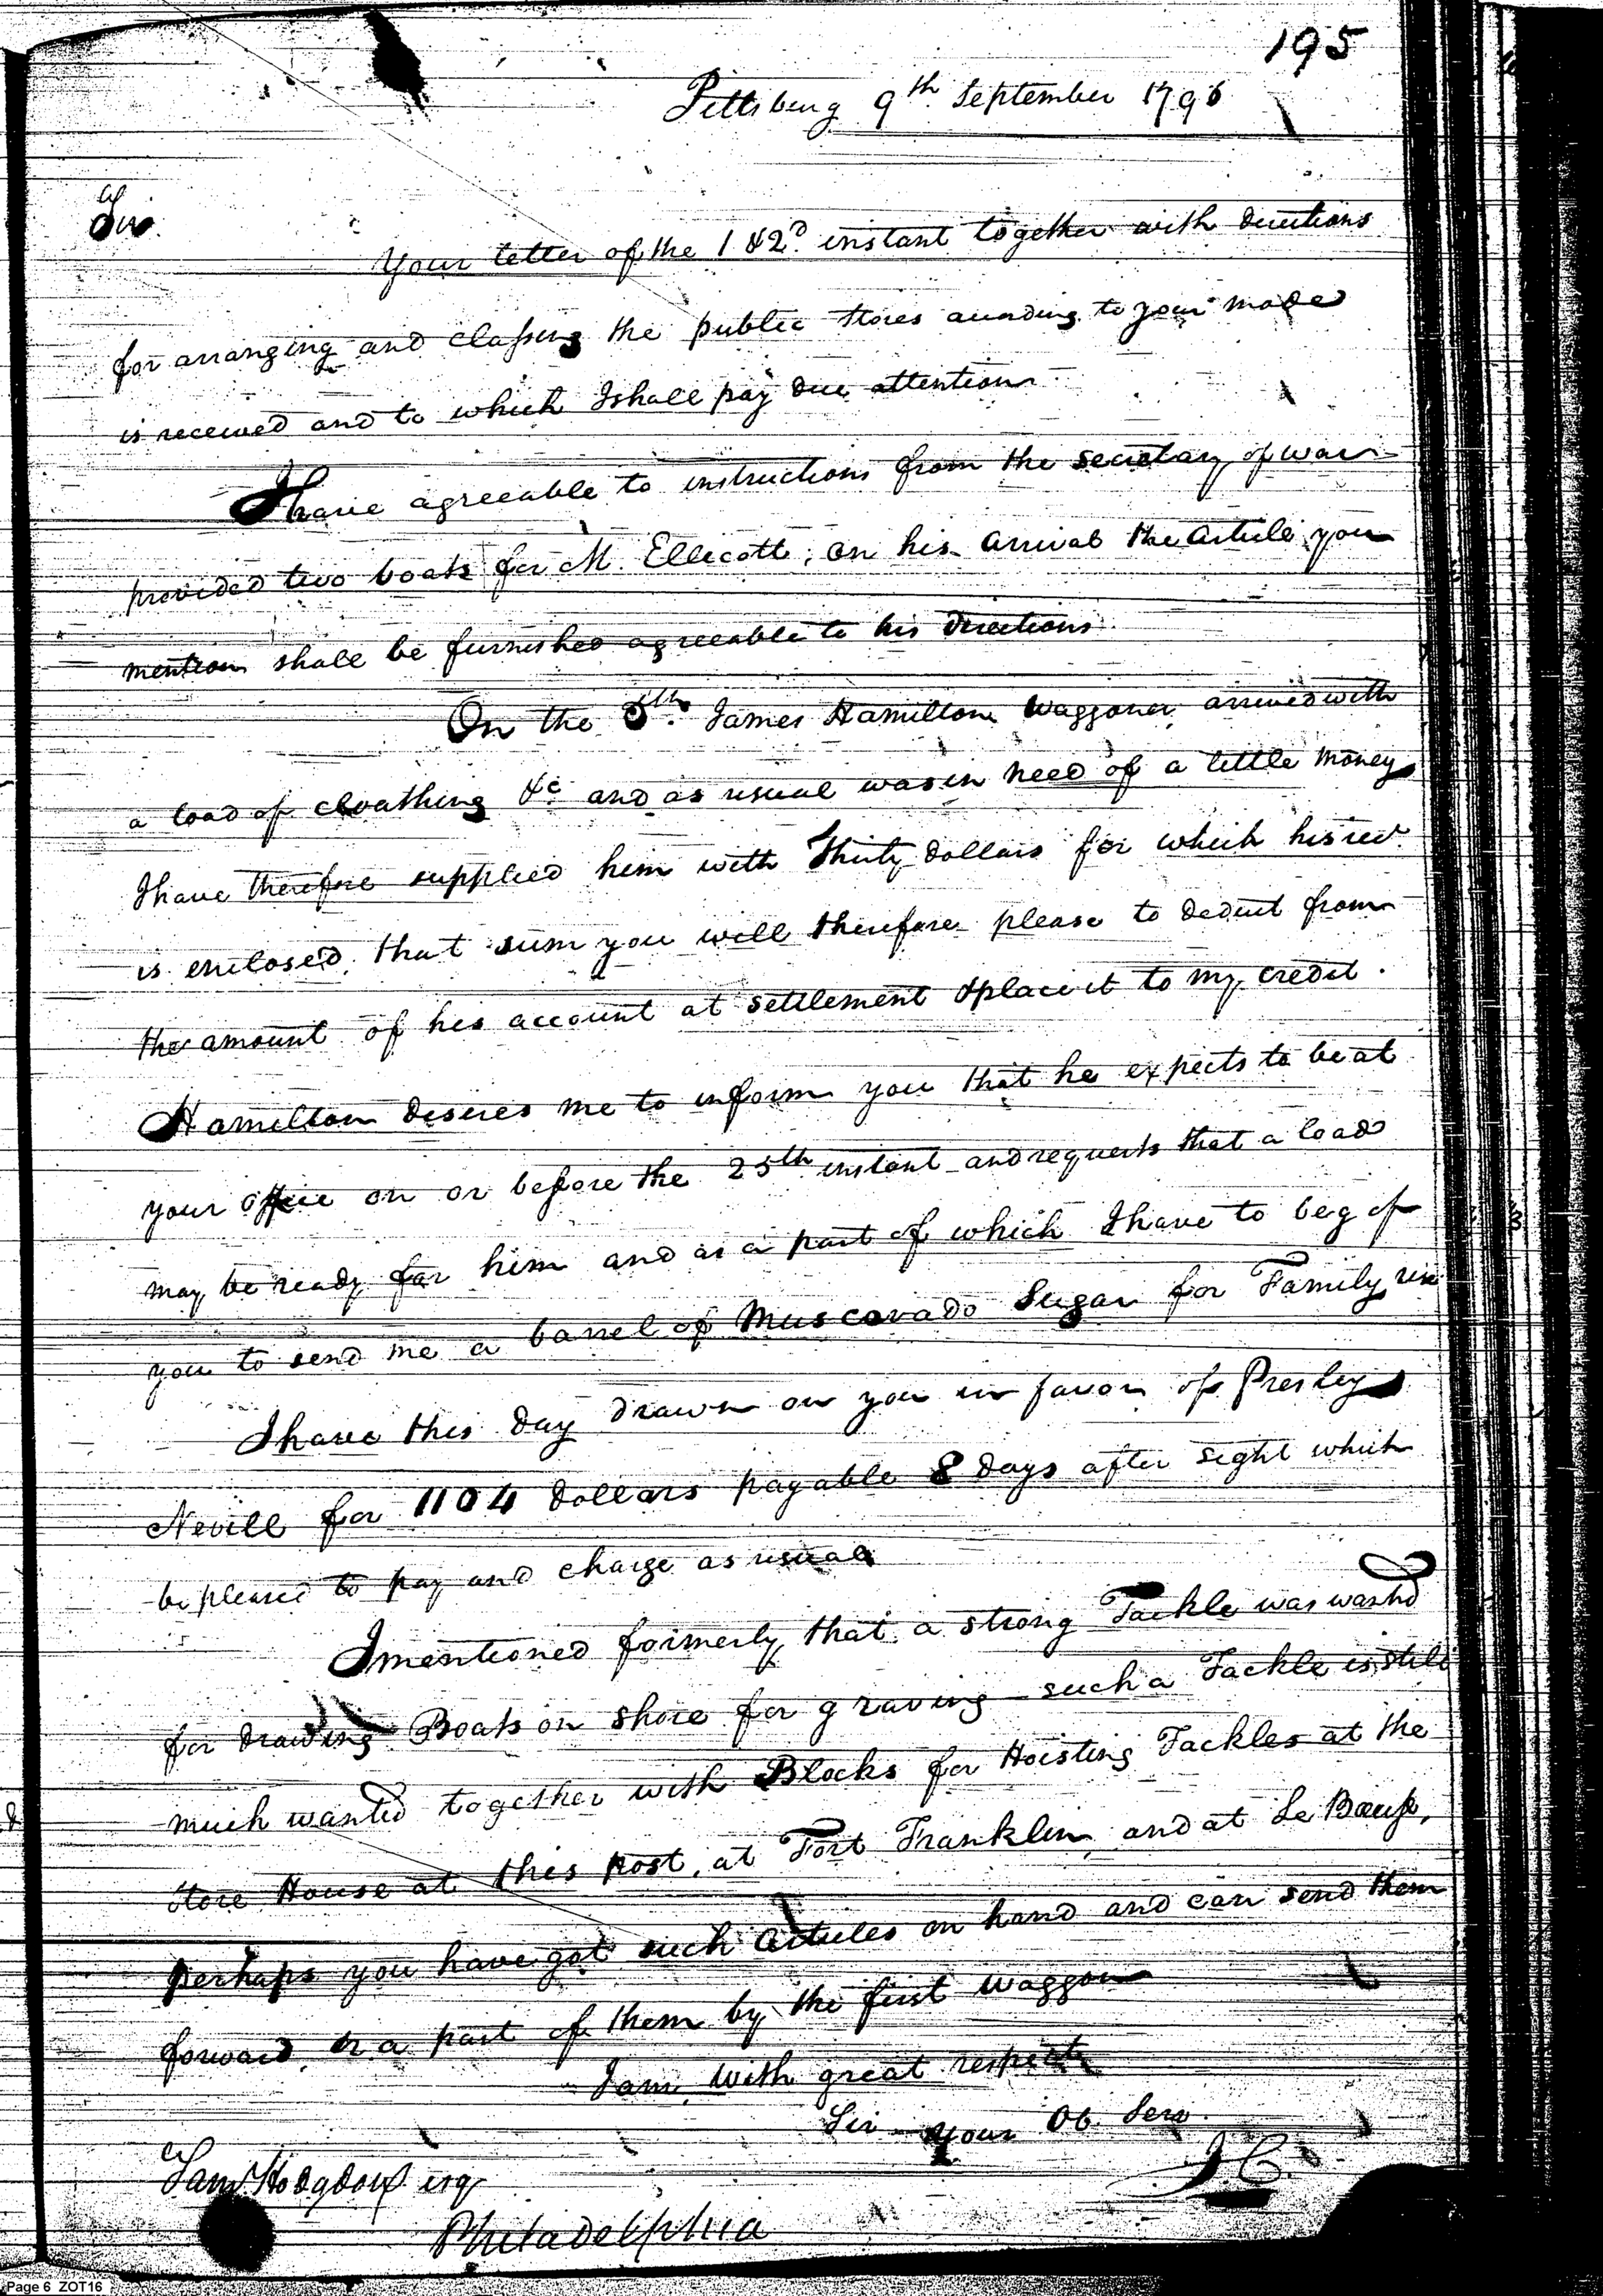 195
Pittsburg 9th September 1796
Sir.
Your letter of the 1 & 2d instant together with directions
for arranging and classing the public stores according to your mode
is received and to which I shall pay due attention
I have agreeable to instructions from the secretary of war
provided two boats for M. Ellicott, on his arrival the article you
mention shall be furnished agreeable to his directions
On the 5th James Hamilton Waggoner arrived with
a load of cloathing &c and as usual was in need of a little money
I have therefore supplied him with Thirty dollars for which his rect
is enclosed, that sum you will therefore please to deduct from
the amount of his account at settlement & place it to my credit.
Hamilton desires me to inform you that he expects to be at
your office on or before the 25th instant and requests that a load
may be ready for him and as a part of which I have to beg of
you to send me a barrel of Muscavado Sugar for Family use
I have this day drawn on you in favor of Presley
Nevill for 1104 dollars payable 8 days after sight which
be pleased to pay and charge as usual
I mentioned formerly that a strong Tackle was wanted
for drawing Boats on shore for graving such a Tackle is still
much wanted together with Blocks for Hoisting Tackles at the
Store House at this post, at Fort Franklin and at Le Bœuf,
perhaps you have got such articles on hand and can send them
forward or a part of them by the first waggon
I am with great respect
Sir your Ob. Serv.
Saml Hodgdon esqr
Philadelphia
Page 6 ZOT16